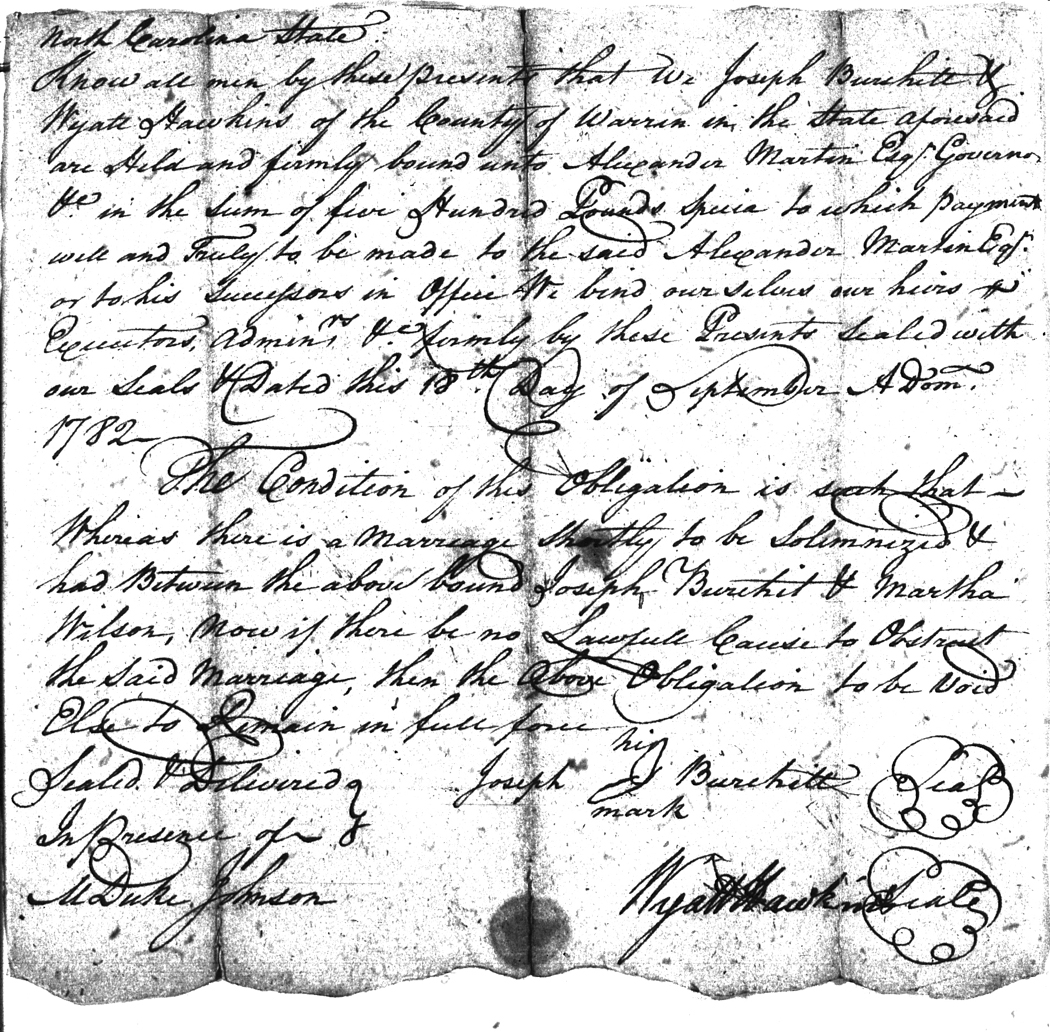 North Carolina State
Know all men by these presents that We Joseph Burchett &
Wyatt Hawkins of the County of Warrin in the State aforesaid
are Held and firmly bound unto Alexander Martin Esqr. Governor
&c in the Sum of five Hundred Pounds Specia to which payment
well and Truly to be made to the said Alexander Martin Esqr.
or to his Successors in Office We bind our selves our heirs &
Executors, Adminrs &c. firmly by these Presents Sealed with
our Seals & Dated this 18th Day of September A Dom.
1782
The Condition of this Obligation is such that
Whereas there is a Marriage shortly to be Solemnized &
had Between the above bound Joseph Burchit & Martha
Wilson, Now if there be no Lawfull Cause to Obstruct
the said Marriage, then the Above Obligation to be Void
Else to Remain in full force
Sealed & Delivered
In presence of
his
Joseph J Burchett Seal
mark
M Duke Johnson
Wyatt Hawkins Seale